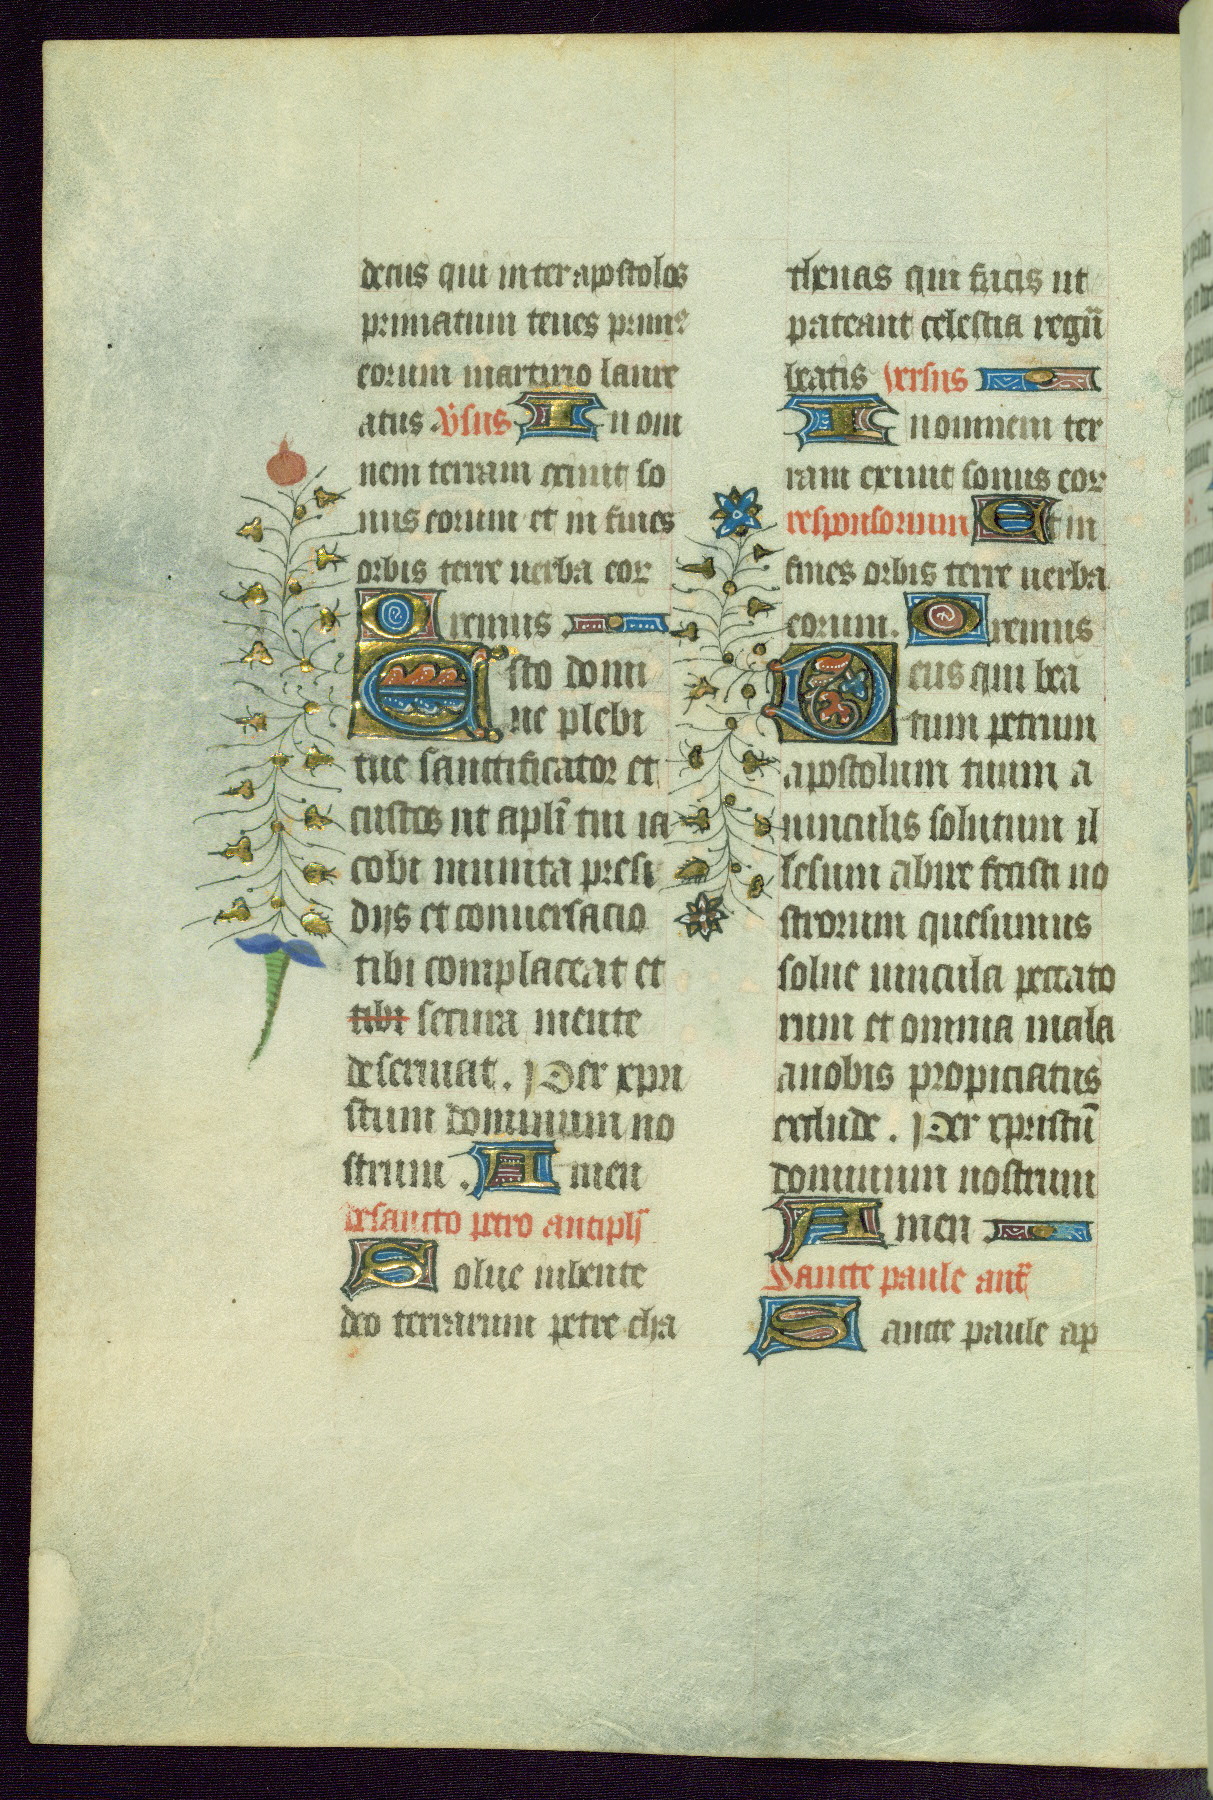 decus qui inter apostolos
primatum tenes primꝰ
eorum martirio laure
atus v̾sus In om
nem terram exiuit so
nus eorum et in fines
orbis terre uerba eor
Oremus.
Esto domi
ne plebi
tue sanctificator et
custos ut apl̅i tui ia
cobi munita presi
dijs et conuersacio
tibi complaceat et
tibi secura mente
deseruiat. Per xpri
stum dominum no
strum. Amen
de sancto petro
Solue iubente
deo terrarum petre cha
thenas qui facis ut
pateant celestia regn̅
beatis versus
In omnem ter
ram exiuit sonus eor
responsorium Et in
fines orbis terre uerba
eorum. Oremus
Deus qui bea
tum petrum
apostolum tuum a
uinculis solutum il
lesum abire fecisti no
strorum quesumus
solue uincula peccato
rum et omnia mala
a nobis propiciatus
exclude. Per xpristu̅
dominum nostrum
Amen.
Sancte paule an̅t
Sancte paule ap